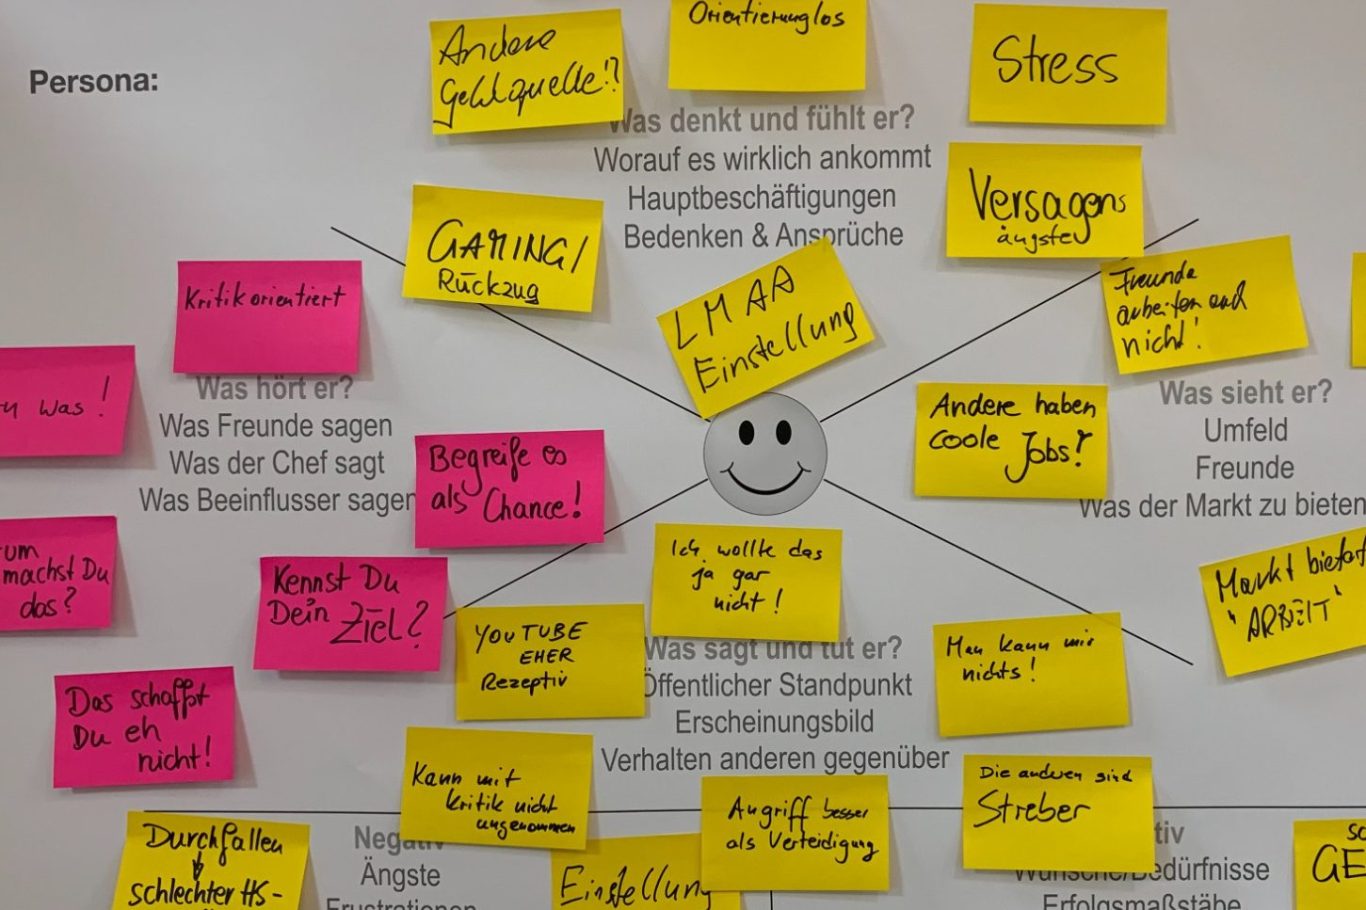 Persona:
Andere
Geldquelle!?
Orientierungslos
Stress
Was denkt und fühlt er?
Worauf es wirklich ankommt
Hauptbeschäftigungen
Bedenken & Ansprüche
Versagens
ängsten
GAMING/
Rückzug
LMAA
Einstellung
Kritikorientiert
Was!
Was hört er?
Was Freunde sagen
Was der Chef sagt
Was Beeinflusser sagen
Begreife es
als Chance!
um
machst Du
das?
Kennst Du
Dein Ziel?
Das schaffst
Du eh
nicht!
Freunde
arbeiten auch
nicht!
Andere haben
coole Jobs!
Was sieht er?
Umfeld
Freunde
Was der Markt zu bieten
Markt bietet
"ARBEIT"
Ich wollte das
ja gar
nicht!
YOUTUBE
EHER
Rezeptiv
Man kann mir
nichts!
Was sagt und tut er?
Öffentlicher Standpunkt
Erscheinungsbild
Verhalten anderen gegenüber
Kann mit
Kritik nicht
umgenommen
Angriff besser
als Verteidigung
Die anderen sind
Streber
Durchfallen
schlechter HS-
Negativ
Ängste
Frustrationen
Einstellung
tiv
Wünsche/Bedürfnisse
Erfolgsmaßstäbe
GE